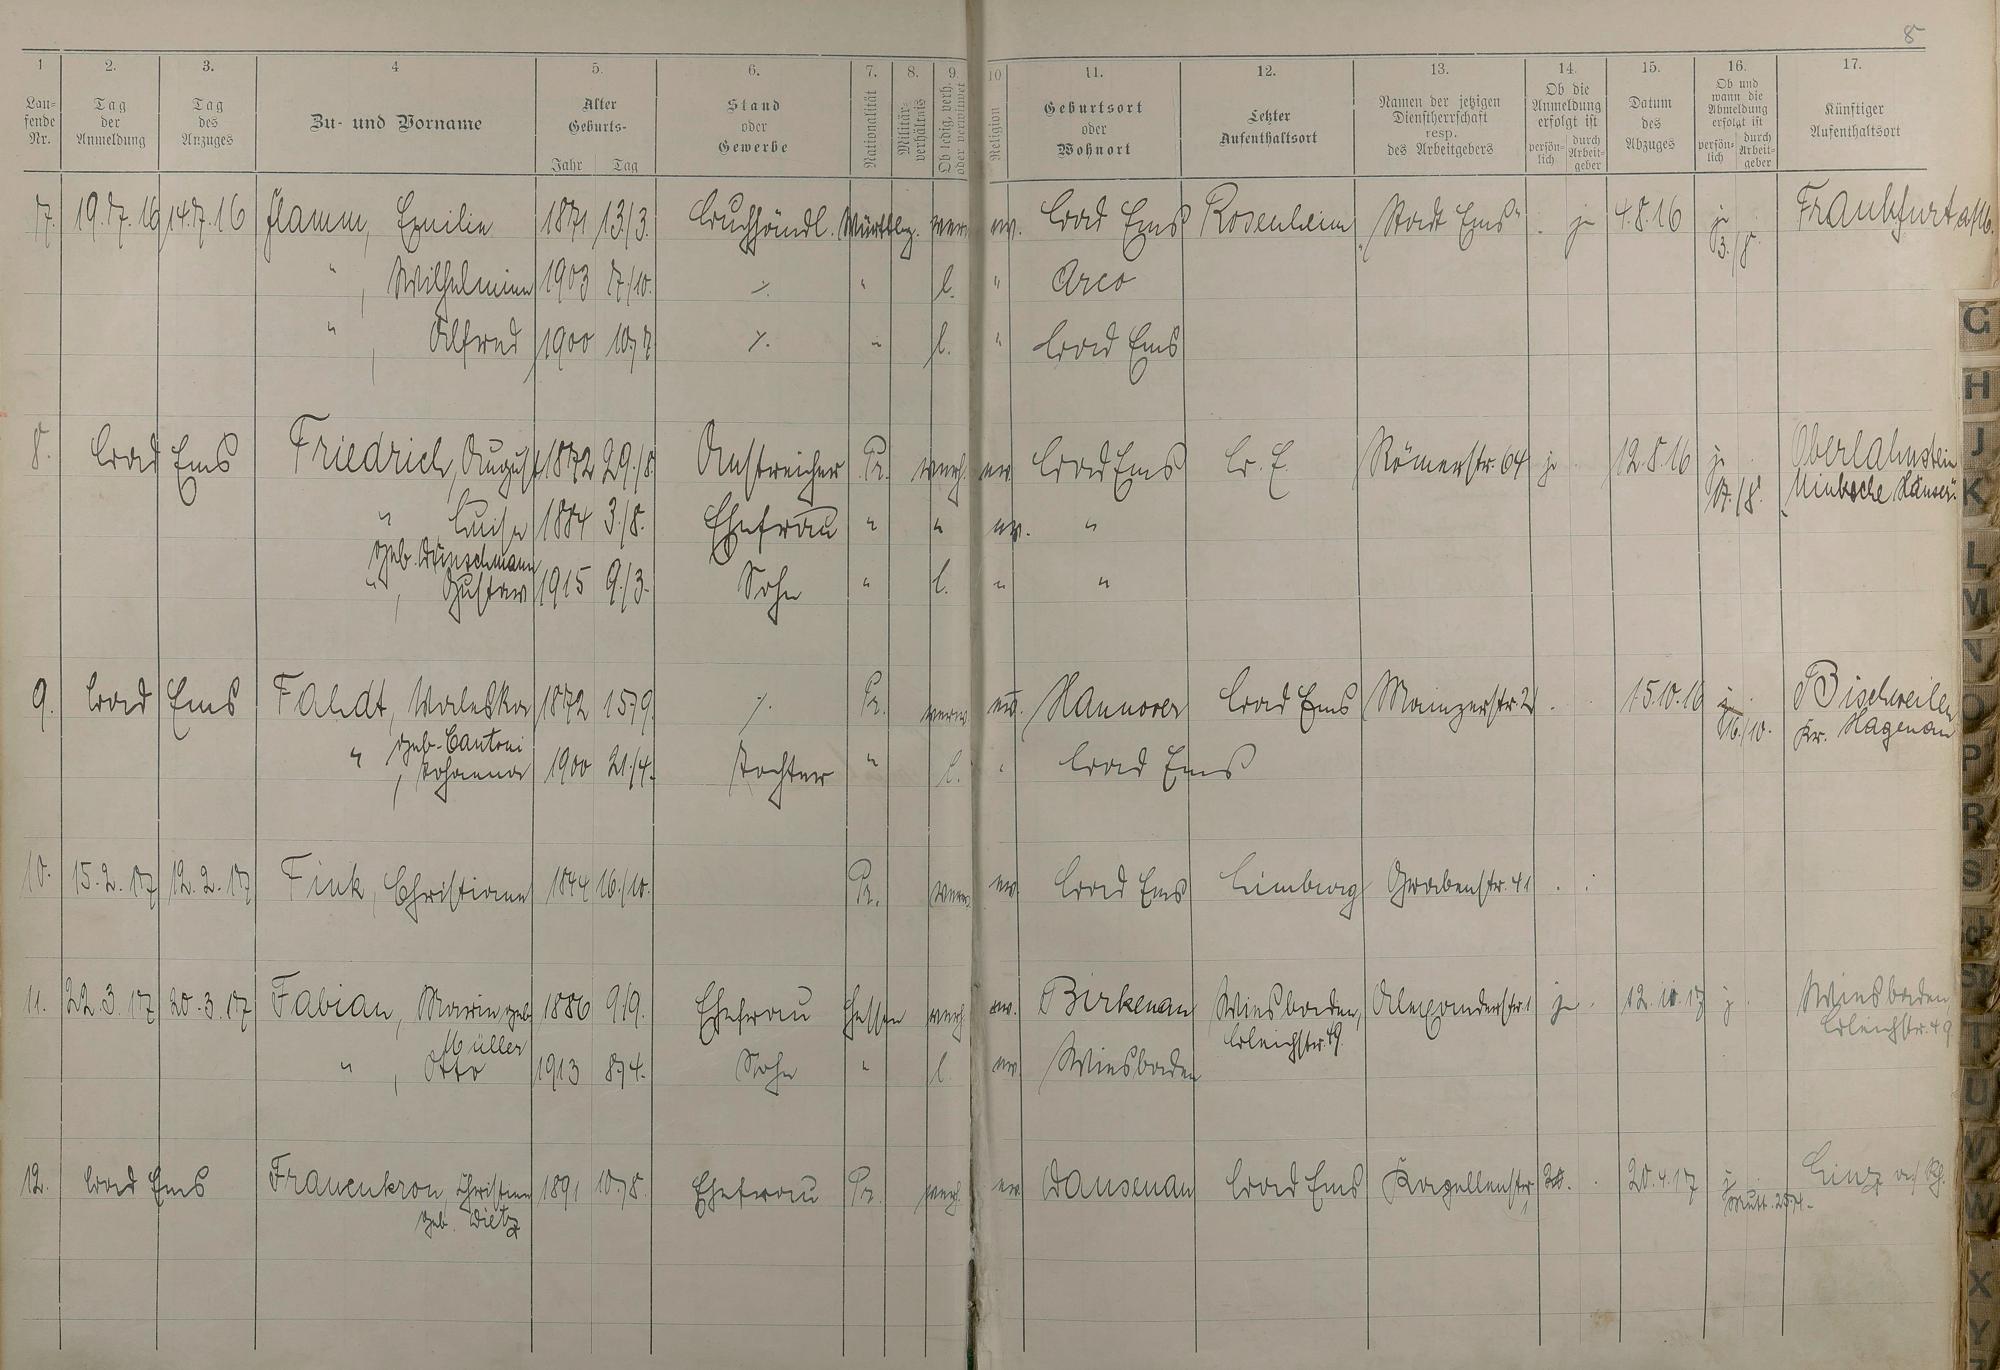 8
1 2. 3. 4 5. 6. 7. 8. 9. 10 11. 12. 13. 14. 15. 16. 17.
Lau-
fende
Nr.
Tag
der
Anmeldung
Tag
des
Anzuges
Zu- und Vorname
Alter
Geburts-
Jahr Tag
Stand
oder
Gewerbe
Nationalität
Militär-
verhältnis
Ob ledig, verh.
oder verwitwet
Religion
Geburtsort
oder
Wohnort
Letzter
Aufenthaltsort
Namen der jetzigen
Dienstherrschaft
resp.
des Arbeitgebers
Ob die
Anmeldung
erfolgt ist
persön-
lich
durch
Arbeit-
geber
Datum
des
Abzuges
Ob und
wann die
Abmeldung
erfolgt ist
persön-
lich
durch
Arbeit-
geber
Künftiger
Aufenthaltsort
7. 19.7.16 14.7.16 Flamm, Emilie 1871 13./3. Buchhändl. Württbg. ev. Bad Ems Rosenheim „Stadt Ems" ja 4.8.16 ja Frankfurt a/M.
3./8.
" , Wilhelmine 1903 7./10. ⁒ " l. " Arco
" , Alfred 1900 10./7. ⁒ " l. " Bad Ems
8. Bad Ems Friedrich, August 1872 29./8. Anstreicher Pr. verh. ev. Bad Ems B. E. Römerstr. 64 ja 12.8.16 ja Oberlahnstein
17./8. Häuser".
" , Luise 1884 3./8. Ehefrau " " ev. "
geb. Wünschmann
" , Gustav 1915 9./3. Sohn " l. " "
9. Bad Ems Fahdt, Waleska 1872 15./9. ⁒ Pr. verw. ev. Hannover Bad Ems Mainzerstr. 2 15.10.16 Bischweiler
16./10. Kr. Hagenau
geb. Cantoni
" , Johanna 1900 21./4. Tochter " l. " Bad Ems
10. 15.2.17 12.2.17 Fink, Christiane 1844 16./10. Pr. verw. ev. Bad Ems Limburg Grabenstr. 41
11. 22.3.17 20.3.17 Fabian, Marie, geb. 1886 9./9. Ehefrau Hessen verh. ev. Birkenau Wiesbaden, Alexanderstr. 1 ja 12.10.17 j Wiesbaden,
Müller Bleichstr. 49. Bleichstr. 49
" , Otto 1913 8./4. Sohn " l. ev. Wiesbaden
12. Bad Ems Frauenkron, Christine 1891 10./8. Ehefrau Pr. verh. ev. Dausenau Bad Ems Kapellenstr. 20.4.17 j Linz a/Rh.
geb. Dietz
G
H
J
K
L
M
N
O
P
R
S
Sch
St
T
U
V
W
X
Y
Z